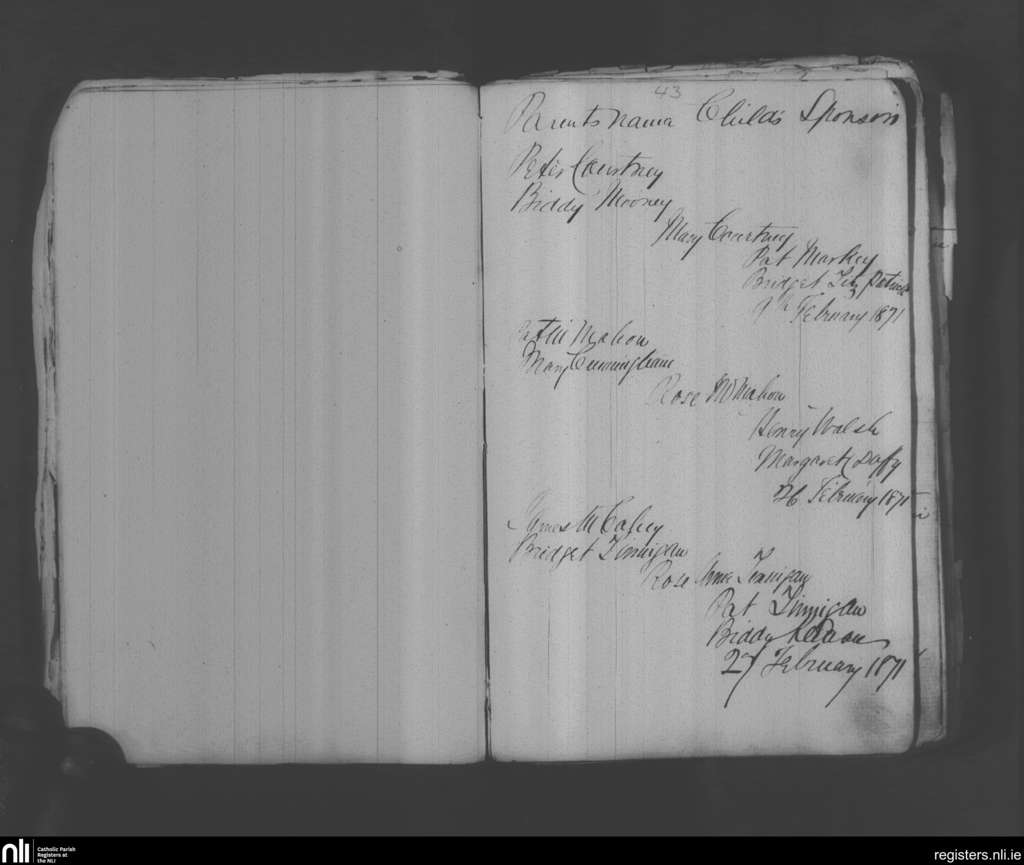 43
Parents name Child's Sponsors
Peter Courtney
Biddy Mooney
Mary Courtney
Pat Markey
Bridget Fitz Patrick
9th February 1871
McMahon
Mary Cunningham
Rose McMahon
Henry Walsh
Margaret Duffy
26 February 1871
James McCabey
Bridget Finnigan
Rose Anne Finnigan
Pat Finnigan
Biddy
27 February 1871
nli
Catholic Parish
Registers at
the NLI
registers.nli.ie